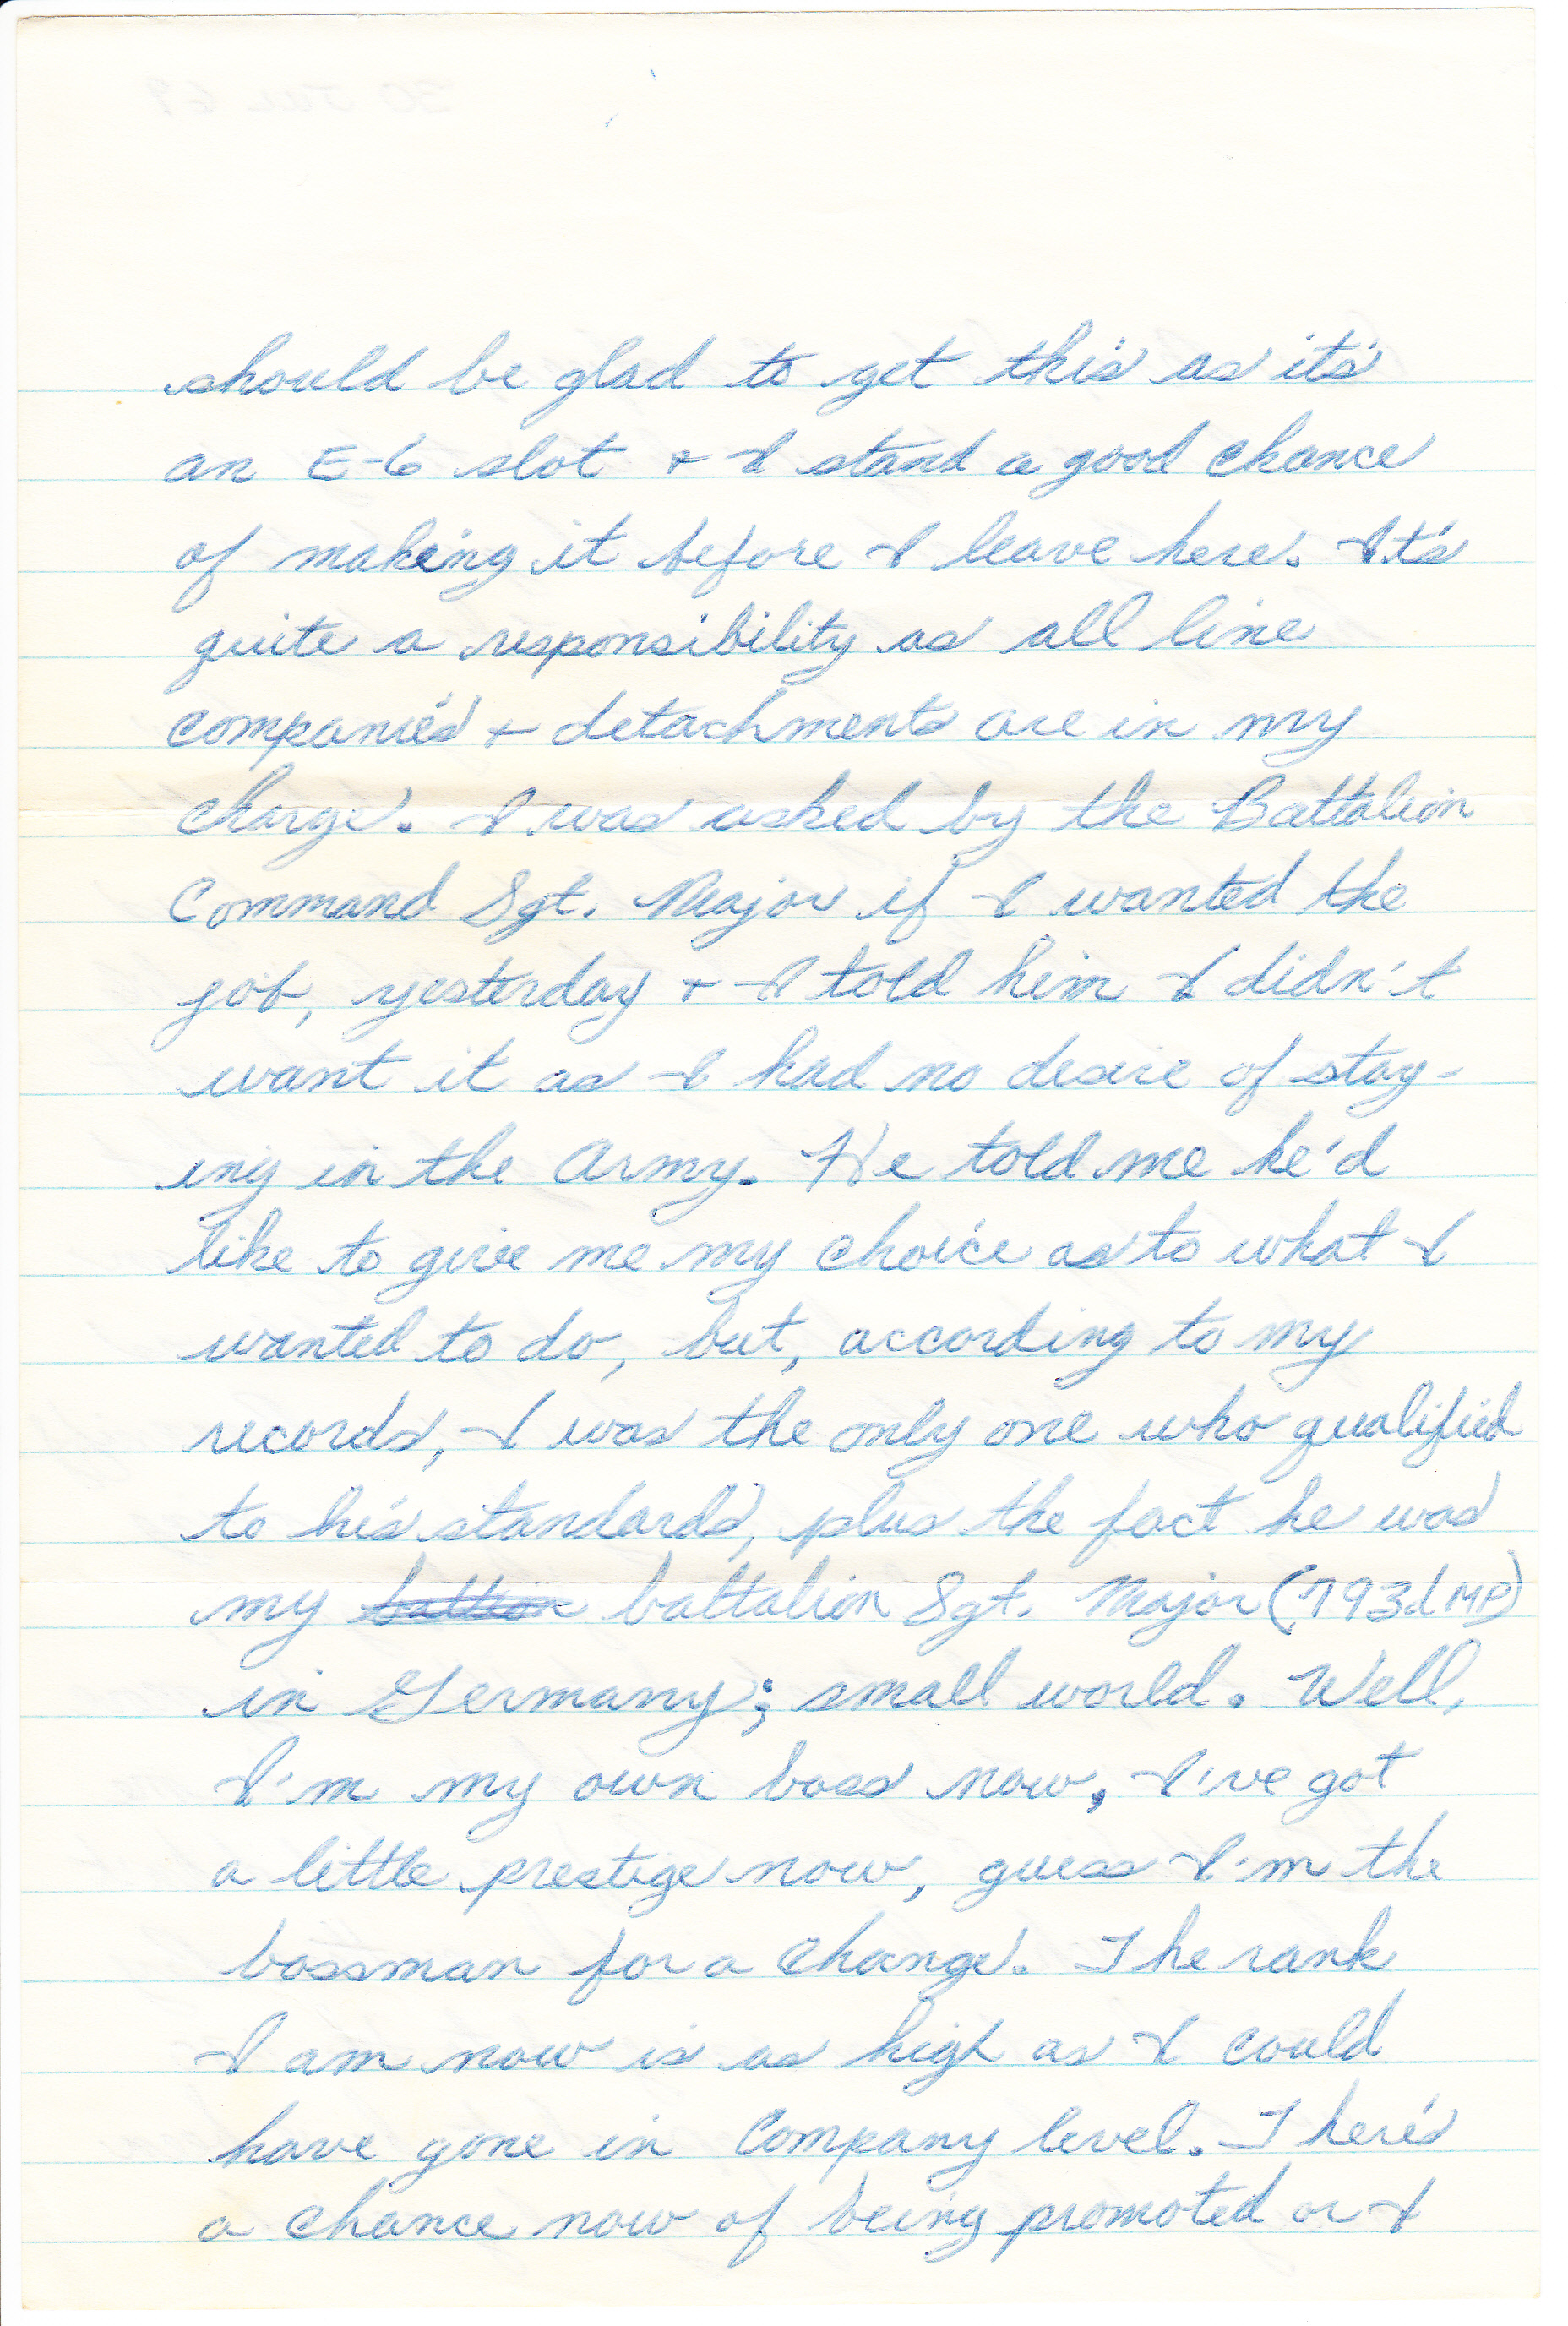 should be glad to get this as it's
an E-6 slot + I stand a good chance
of making it before I leave here. It's
quite a responsibility as all line
companies + detachments are in my
charge. I was asked by the Battalion
Command Sgt. Major if I wanted the
job, yesterday + I told him I didn't
want it as I had no desire of stay-
ing in the Army. He told me he'd
like to give me my choice as to what I
wanted to do, but, according to my
records, I was the only one who qualified
to his standards, plus the fact he was
my battalion Sgt. Major (793d MP)
in Germany; small world. Well,
I'm my own boss now, I've got
a little prestige now, guess I'm the
bossman for a change. The rank
I am now is as high as I could
have gone in Company level. There's
a chance now of being promoted or I